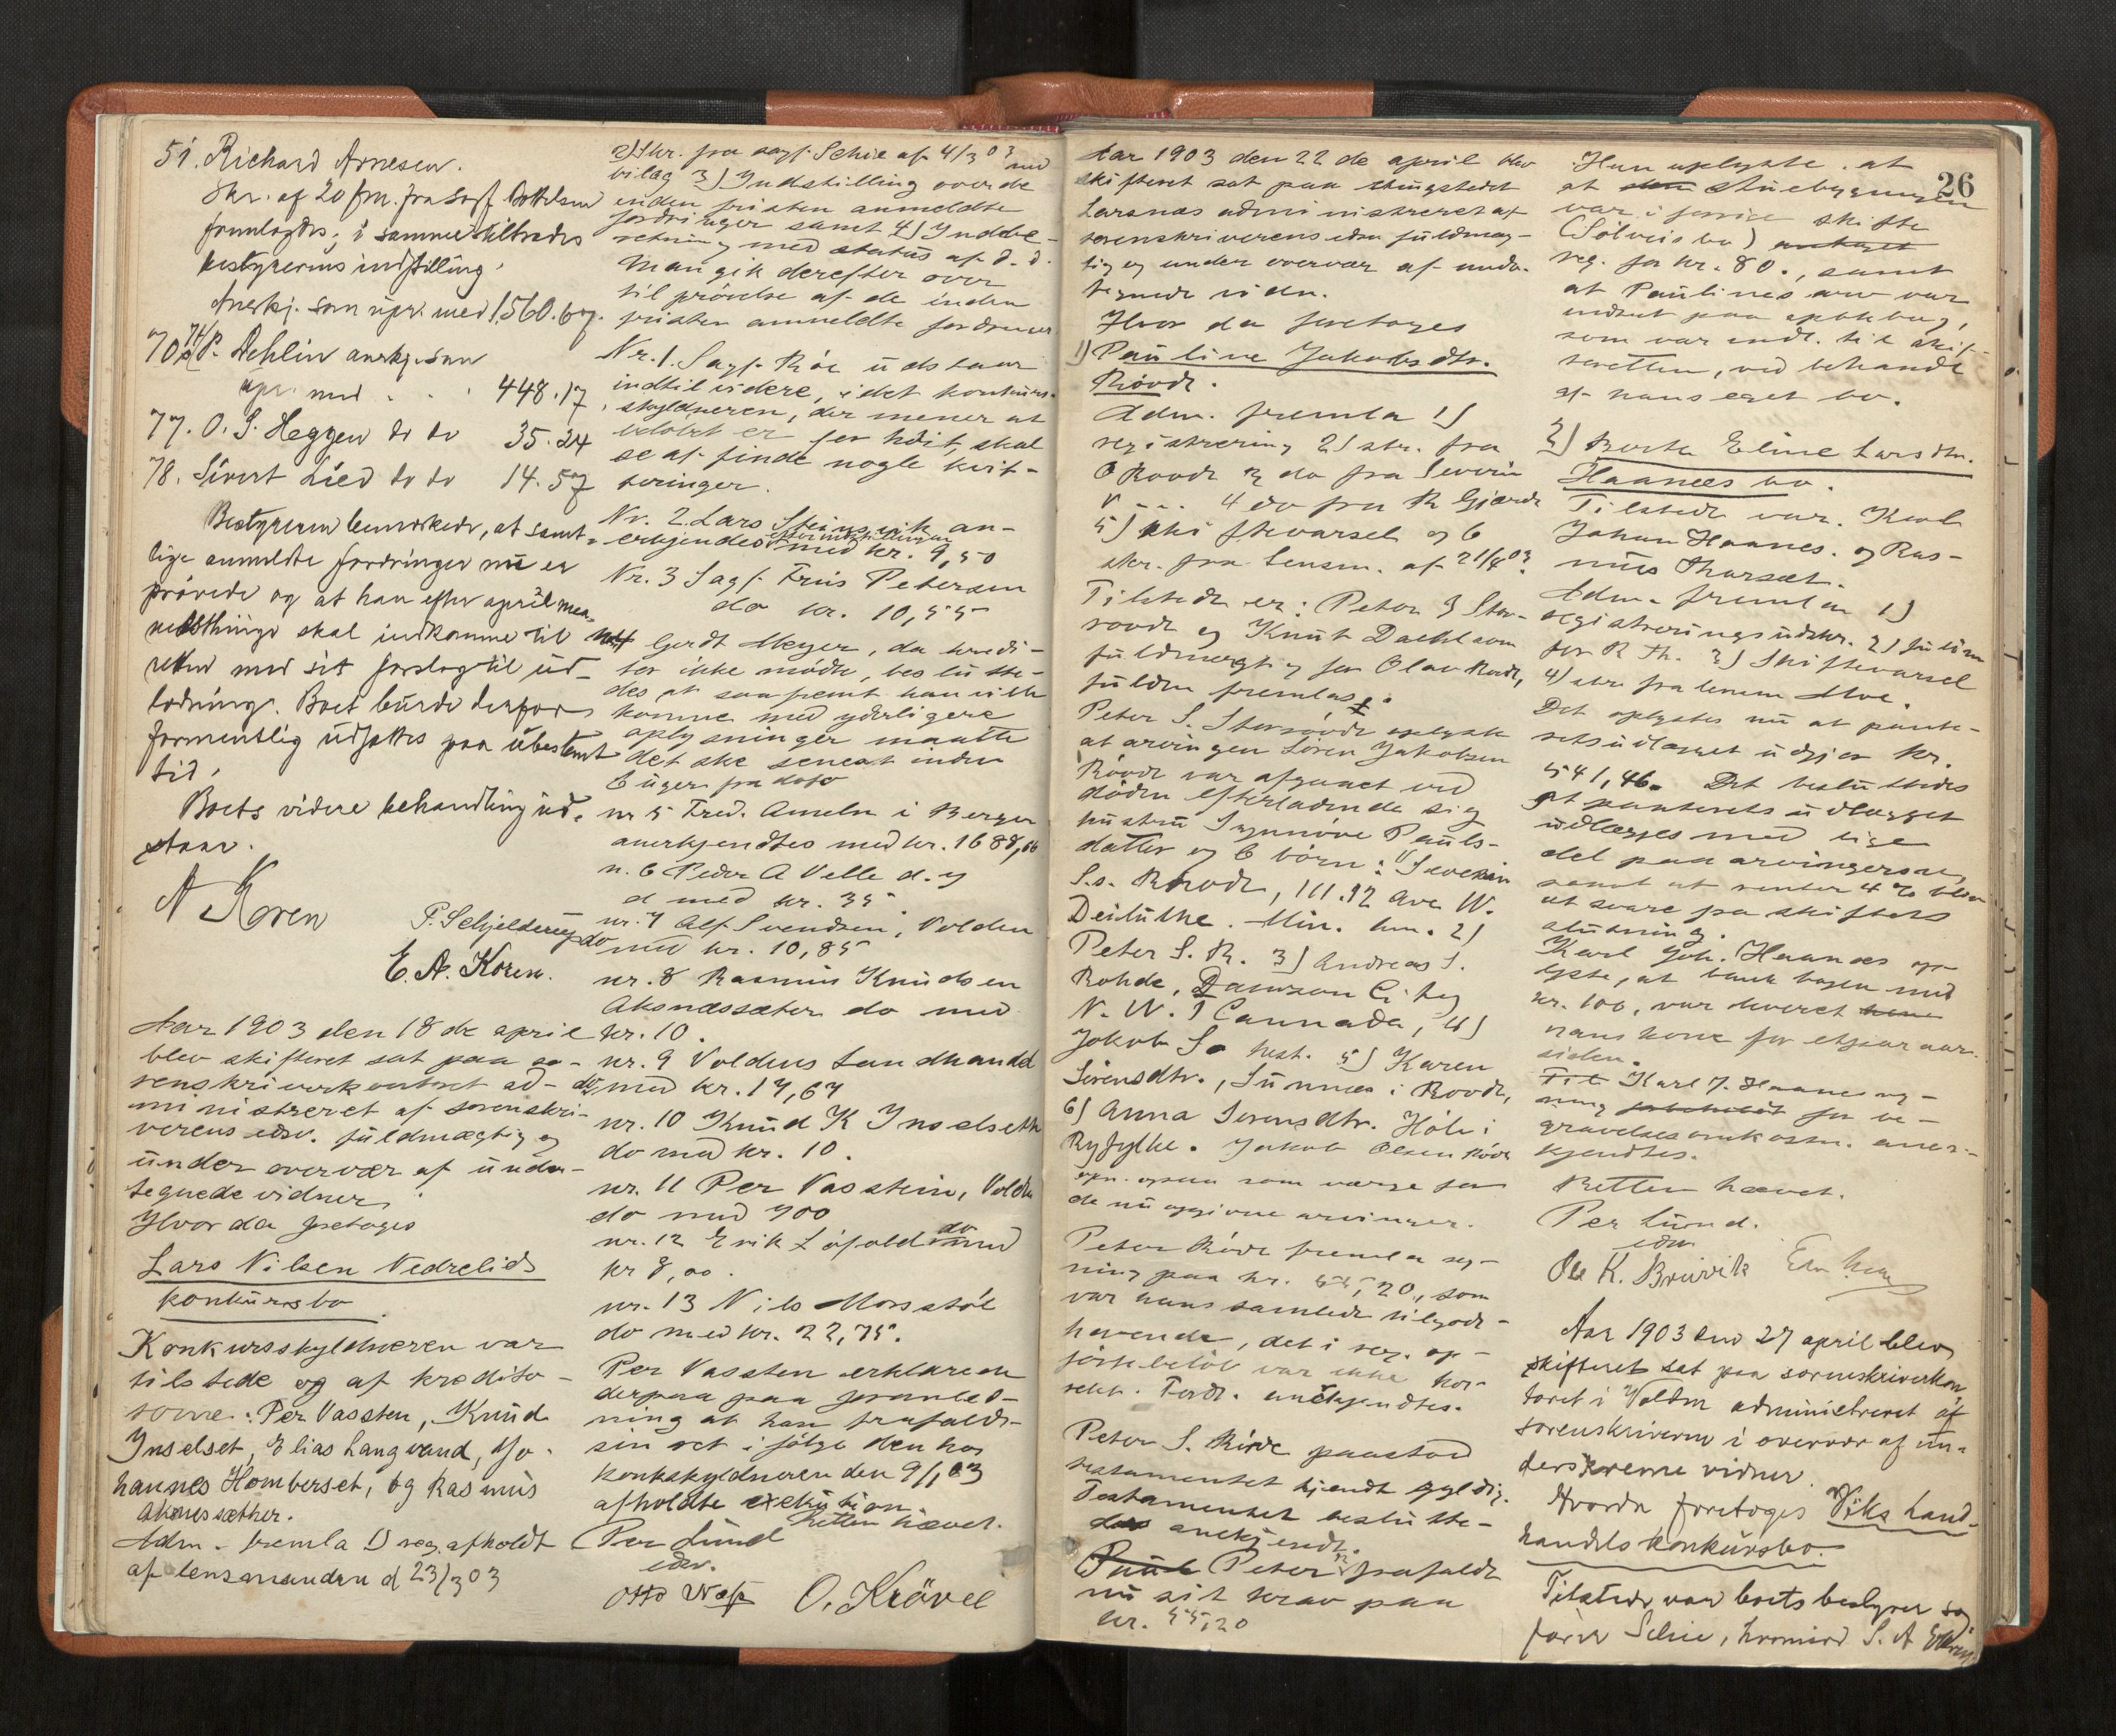 51. Richard Arnesen.
Skr. af 20 fm. fra Sagf.
fremlagdes; i samme tiltrædes
bestyrerens indstilling.
Anerkj. som upr. med 1,560.67.
70 P. Dehlin anerkj. som
upr. med . . . 448.17
77. O. S. Heggen do do 35.24
78. Sivert Lied do do 14.57
Bestyreren bemærkede, at samt-
lige anmeldte fordringer nu er
prøvede og at han efter april maa-
nedsthinge skal indkomme til
retten med sit forslag til ud-
lodning. Boet burde derfor
formentlig udsættes paa ubestemt
tid.
Boets videre behandling ud-
staar.
N Koren
P. Schjelderup
E. A. Koren.
Aar 1903 den 18 de april
blev skifteret sat paa so-
renskriverkontoret ad-
ministreret af sorenskri-
verens edsv. fuldmægtig og
under overvær af under-
tegnede vidner
Hvor da foretoges
Lars Nilsen Nedrelids
konkursbo.
Konkursskyldneren var
tilstede og af kredito-
rerne: Per Vassten, Knud
Inselset, Elias Langvand, Jo-
hannes Homberset, og Rasmus
Aksnessæther.
Adm. fremla 1) reg. afholdt
af lensmanden d 23/3 03
2) Skr. fra sagf. Schie af 4/3 03 med
bilag 3) Indstilling over de
inden fristen anmeldte
fordringer samt 4) Indbe-
retning med status af d. d.
Man gik derefter over
til prövelse af de inden
fristen anmeldte fordringer
Nr. 1. Sagf. Röe udstaar
indtil videre, idet konkurs-
skyldneren, der mener at
beløbet er for höit, skal
se at finde nogle kvit-
teringer.
Nr. 2 Lars Steinsvik an-
erkjendes efter indstillingen med kr. 9,50
Nr. 3 Sagf. Friis Petersen
do kr. 10,55
nr 4 Gerdt Meyer, da kredi-
tor ikke mödte, beslutte-
des at saafremt han vilde
komme med yderligere
oplysninger maatte
det ske senest inden
6 uger fra dato
nr 5 Fred. Ameln i Bergen
anerkjendtes med kr. 1688,66
n. 6 Peder A Velle d. y
d med kr. 35
nr. 7 Alf Svendsen, Volden
do med kr. 10,85
nr. 8 Rasmus Knudsen
Aksnæssæter do med
kr. 10.
nr. 9 Voldens Landhandel
do med kr. 17,67
nr. 10 Knud K Inselseth
do med kr. 10.
nr. 11 Per Vasstein, Volden
do med 700
nr. 12 Erik Löfold do med
kr 8,00.
nr. 13 Nils Morsstöl
do med kr. 22,75.
Per Vassten erklærede
derpaa paa foranled-
ning at han frafaldt
sin ret i följe den hos
konkskyldneren den 9/1 03
afholdte exekution.
Retten hævet.
Per Lund
edsv.
Otto O. Krövel
26
Aar 1903 den 22 de april blev
skifteret sat paa thingstedet
Larsnæs administreret af
sorenskriverens edsv fuldmæg-
tig og under overvær af under-
tegnede vidn.
Hvor da foretoges
1) Pauline Jakobsdtr.
Rövde.
Adm. fremla 1)
registrering 2) skr. fra
O Rovde 3 do fra Severin
4 do fra R Gjærde
5) skiftevarsel og 6
skr. fra Lensm. af 21/4 03.
Tilstede er: Peter S Stor-
rovde og Knut Dachl som
fuldmægtig for Olav Rovde,
fuldm fremlagt.
Peter S. Storrövde oplyste
at arvingen Sören Jakobsen
Rövde var afgaaet ved
döden efterladende sig
hustru Synnöve Pauls-
datter og 6 börn: 1) Severin
S.s. Rövde, 111.12 Ave W.
Deiluthe. Min. Am. 2)
Peter S. R. 3) Andreas S.
Rohde, Dawson City
N. W. T Cannada, 4)
Jakob S. hest. 5) Karen
Sörensdtr., Sunnæs i Rovde,
6) Anna Sorensdtr. Höle i
Ryfylke. Jakob Olsen Rövde
opn. som værge for
de nu opgivne arvinger.
Peter Rövde fremla reg-
ning paa kr. 55,20, som
var hans samlede tilgode-
havende, det i reg. op-
förte belöb var ikke kor-
rekt. Fordr. anerkjendtes.
Peter S. Rövde paastod
testamentet kjendt gyldig.
Testamentet beslutte-
des anerkjendt.
Paul Peter R frafaldt
nu sit krav paa
kr. 55,20
Hun oplyste at
at den stuebygningen
var i forrige skifte
(Sölveis bo) antaget
reg. for kr. 80., samt
at Paulines arv var
indsat paa spbkbog,
som var indl. til skif-
teretten, ved behandl
af hans eget bo.
2) Berta Eline Larsdtr.
Haanæs bo.
Tilstede var. Karl
Johan Haanes. og Ras-
mus Thorsæt.
Adm. fremla 1)
registreringsudskr. 2) fuldm
for R Th. 3) Skiftevarsel
4) skr fra lensm Moe.
Det oplystes nu at pante-
retsudlægget udgjør kr.
541,46. Det besluttedes
at panterets udlægget
udlægges med lige
del paa arvingerne,
samt at renter 4 % blev
at svare fra skiftets
slutning.
Karl Joh. Haanæs op-
lyste, at bank bogen med
kr. 100, var hævet hans
hans kone for etpar aar
siden.
Til Karl J. Haanes reg-
ning forbeholdt for be-
gravelsesomkostn. aner-
kjendtes.
Retten hævet.
Per Lund.
edsv
Ole K. Bruvik
Aar 1903 den 27 april blev
skifteret sat paa sorenskriverkon-
toret i Volden administreret af
sorenskriveren i overvær af un-
derskrevne vidner.
Hvorda foretoges Viks Land-
handels konkursbo.
Tilstede var boets bestyrer sag
förer Schie, kromiss S. A